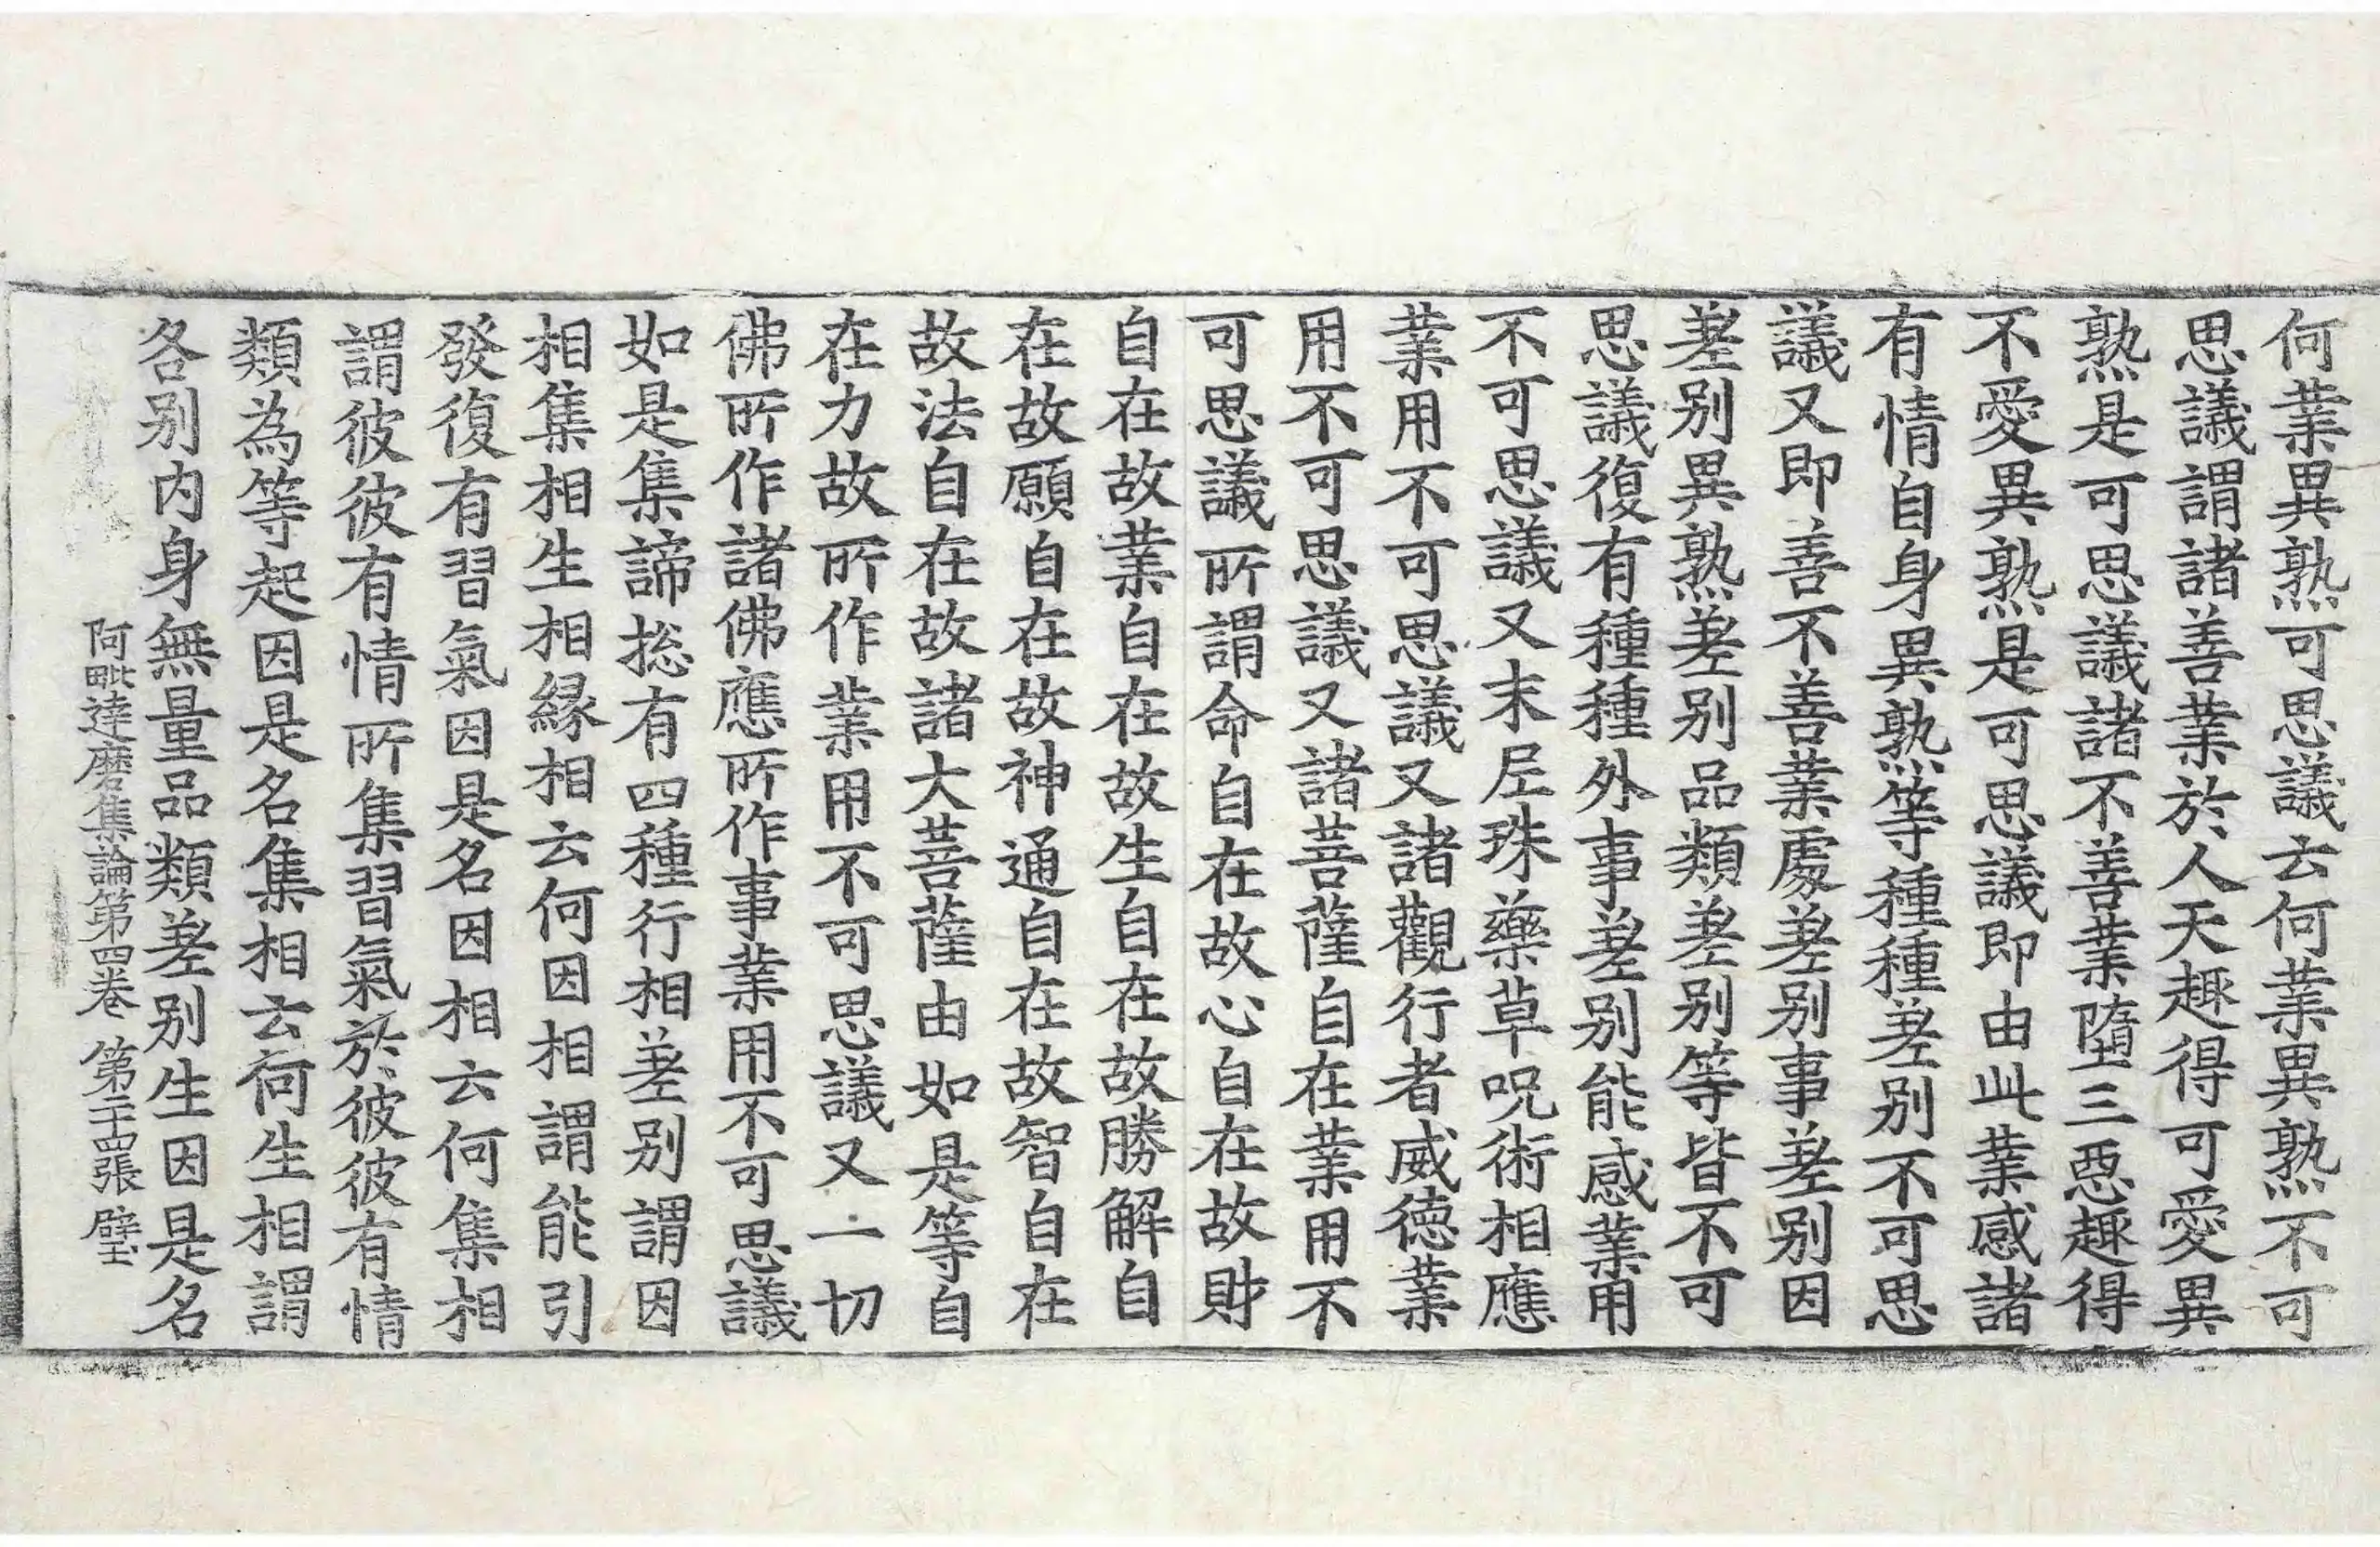 何業異熟可思議云何業異熟不可
思議謂諸善業於人天趣得可愛異
熟是可思議諸不善業墮三惡趣得
不愛異熟是可思議即由此業感諸
有情自身異熟等種種差别不可思
議又即善不善業處差别事差别因
差别異熟差别品類差别等皆不可
思議復有種種外事差别能感業用
不可思議又末尼珠藥草呪術相應
業用不可思議又諸觀行者威德業
用不可思議又諸菩薩自在業用不
可思議所謂命自在故心自在故財
自在故業自在故生自在故勝解自
在故願自在故神通自在故智自在
故法自在故諸大菩薩由如是等自
在力故所作業用不可思議又一切
佛所作諸佛應所作事業用不可思議
如是集諦揔有四種行相差别謂因
相集相生相緣相云何因相謂能引
發復有習氣因是名因相云何集相
謂彼彼有情所集習氣於彼彼有情
類為等起因是名集相云何生相謂
各别内身無量品類差别生因是名
阿毗達磨集論第四卷 第二十四張 璧